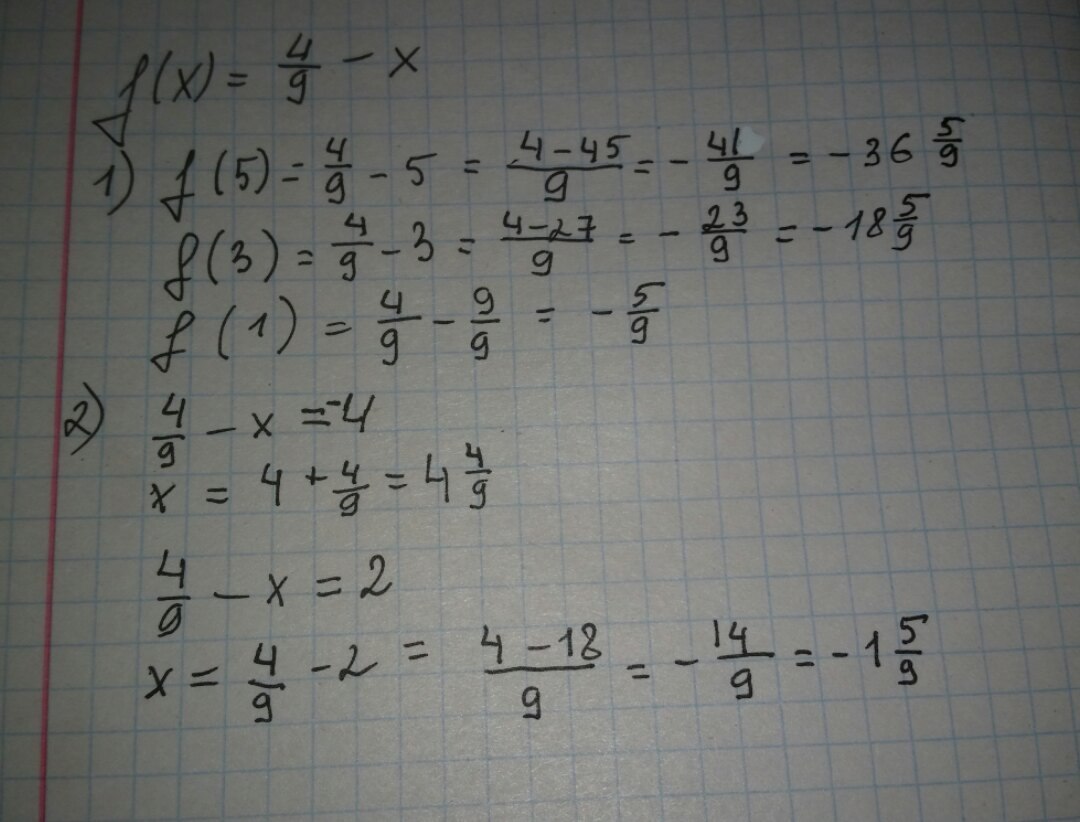 f(x) = 4/9 - x
1) f(5) = 4/9 - 5 = (4-45)/9 = - 41/9 = - 36 5/9
f(3) = 4/9 - 3 = (4-27)/9 = - 23/9 = - 18 5/9
f(1) = 4/9 - 9/9 = - 5/9
2) 4/9 - x = -4
x = 4 + 4/9 = 4 4/9
4/9 - x = 2
x = 4/9 - 2 = (4-18)/9 = - 14/9 = - 1 5/9